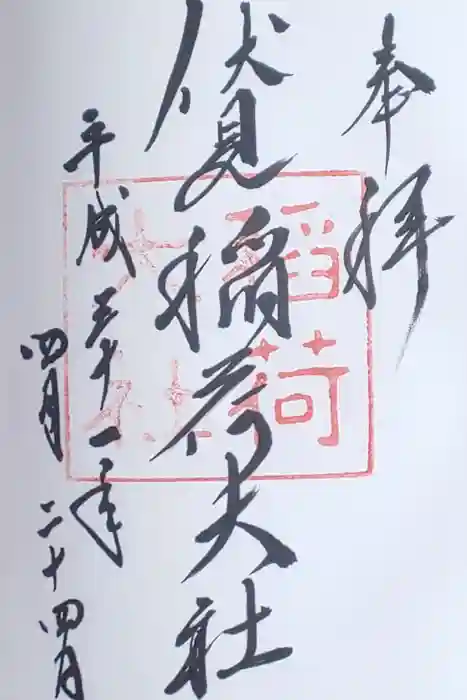 奉拝
伏見稲荷大社
平成三十一年
四月二十四月
稲荷
大社